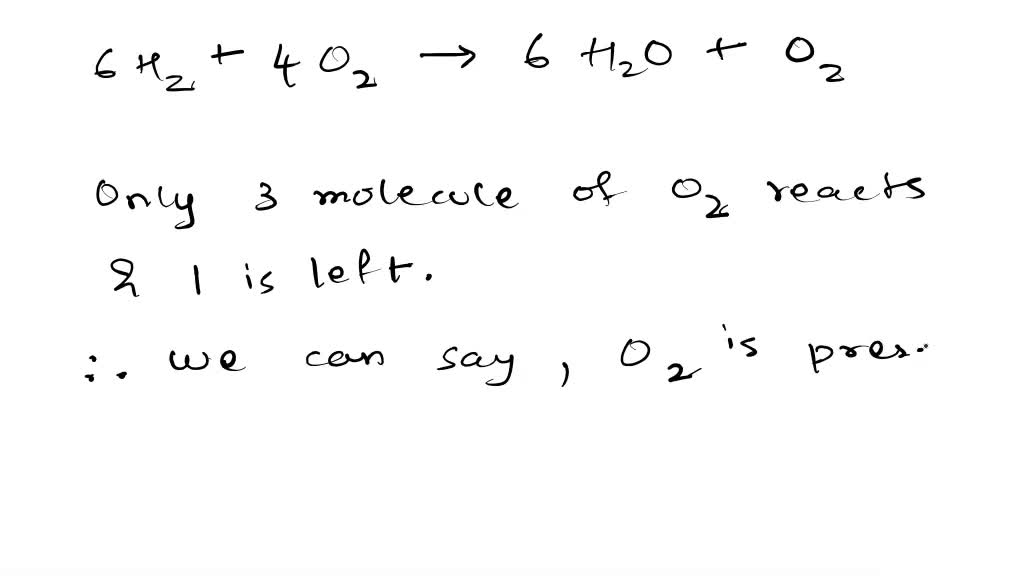 6 H₂ + 4 O₂ → 6 H₂O + O₂
Only 3 molecule of O₂ reacts
& 1 is left.
∴ we can say, O₂ is pres.